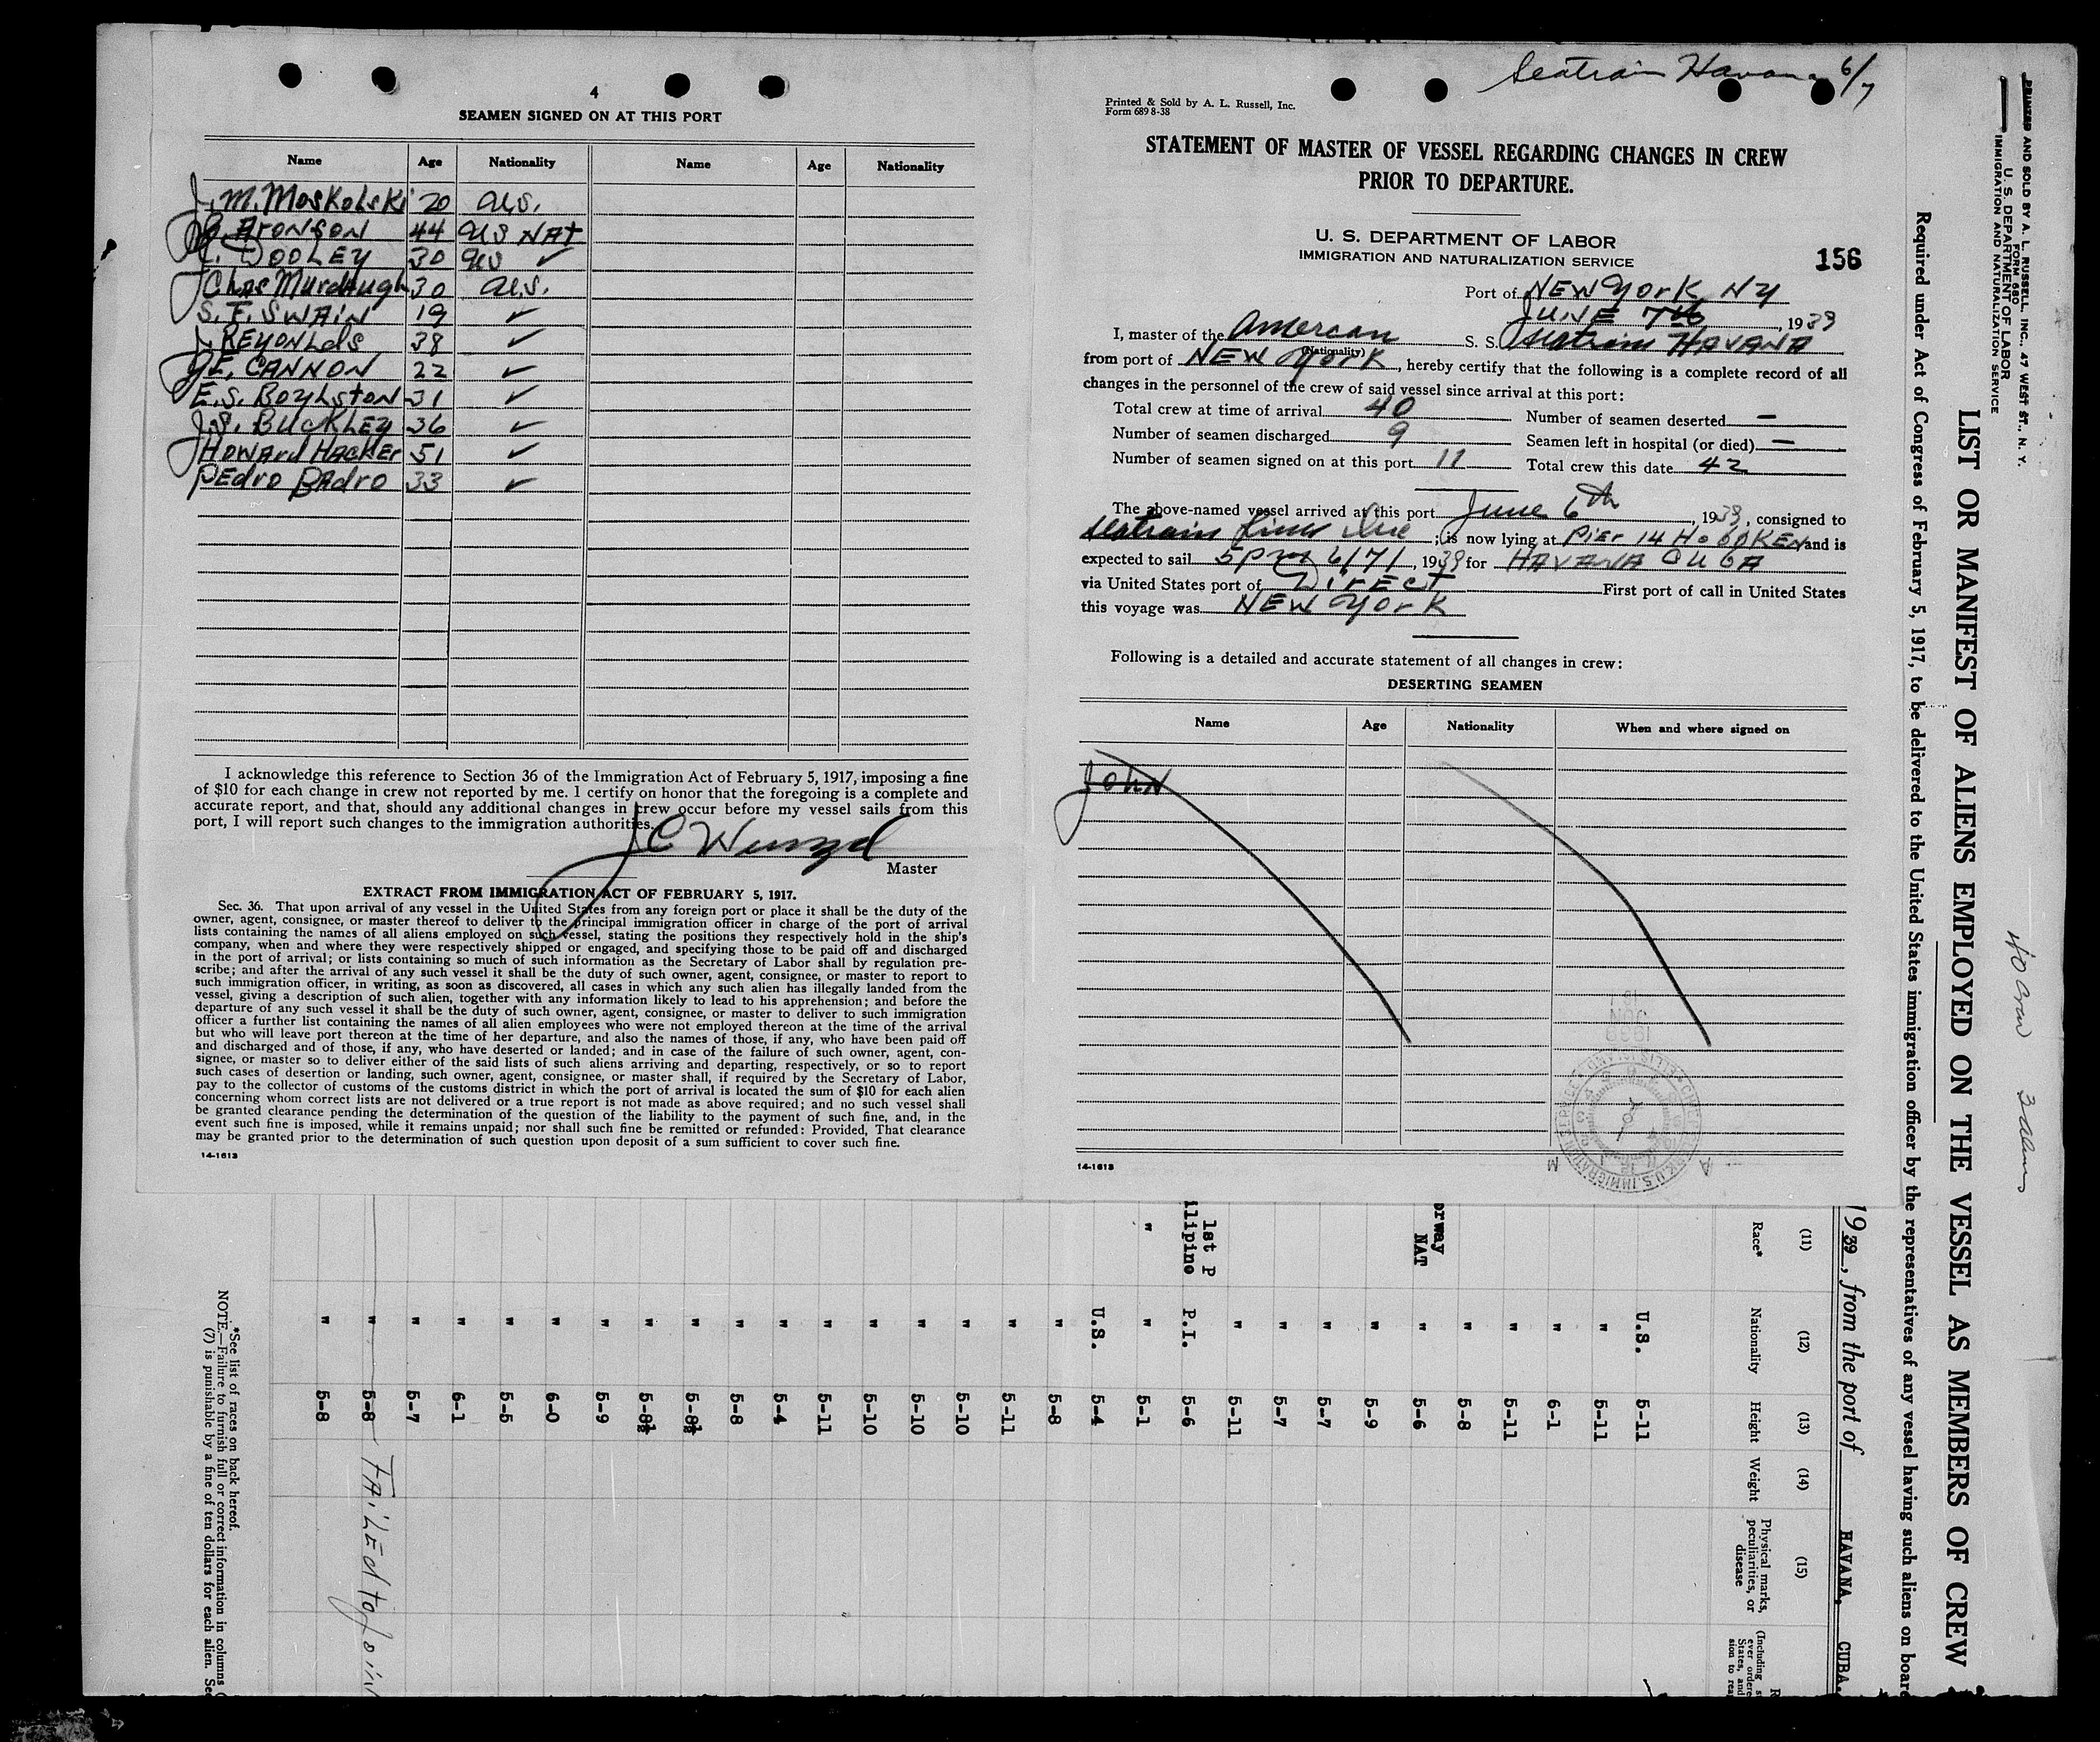 4
SEAMEN SIGNED ON AT THIS PORT
Name Age Nationality Name Age Nationality
J. M. Moskolski 20 U.S.
G. Aronson 44 US NAt
C. DOOLEY 30 US ✓
Chas Murdaugh 30 U.S.
S. F. SWAIN 19 ✓
J. REYONLds 38 ✓
J.E. CANNON 22 ✓
E.S. Boylston 31 ✓
J.S. BUCKLEY 36 ✓
HOWArd HACKEr 51 ✓
PEdro BAdro 33 ✓
I acknowledge this reference to Section 36 of the Immigration Act of February 5, 1917, imposing a fine
of $10 for each change in crew not reported by me. I certify on honor that the foregoing is a complete and
accurate report, and that, should any additional changes in crew occur before my vessel sails from this
port, I will report such changes to the immigration authorities.
Master
EXTRACT FROM IMMIGRATION ACT OF FEBRUARY 5, 1917.
Sec. 36. That upon arrival of any vessel in the United States from any foreign port or place it shall be the duty of the
owner, agent, consignee, or master thereof to deliver to the principal immigration officer in charge of the port of arrival
lists containing the names of all aliens employed on such vessel, stating the positions they respectively hold in the ship's
company, when and where they were respectively shipped or engaged, and specifying those to be paid off and discharged
in the port of arrival; or lists containing so much of such information as the Secretary of Labor shall by regulation pre-
scribe; and after the arrival of any such vessel it shall be the duty of such owner, agent, consignee, or master to report to
such immigration officer, in writing, as soon as discovered, all cases in which any such alien has illegally landed from the
vessel, giving a description of such alien, together with any information likely to lead to his apprehension; and before the
departure of any such vessel it shall be the duty of such owner, agent, consignee, or master to deliver to such immigration
officer a further list containing the names of all alien employees who were not employed thereon at the time of the arrival
but who will leave port thereon at the time of her departure, and also the names of those, if any, who have been paid off
and discharged and of those, if any, who have deserted or landed; and in case of the failure of such owner, agent, con-
signee, or master so to deliver either of the said lists of such aliens arriving and departing, respectively, or so to report
such cases of desertion or landing, such owner, agent, consignee, or master shall, if required by the Secretary of Labor,
pay to the collector of customs of the customs district in which the port of arrival is located the sum of $10 for each alien
concerning whom correct lists are not delivered or a true report is not made as above required; and no such vessel shall
be granted clearance pending the determination of the question of the liability to the payment of such fine, and, in the
event such fine is imposed, while it remains unpaid; nor shall such fine be remitted or refunded: Provided, That clearance
may be granted prior to the determination of such question upon deposit of a sum sufficient to cover such fine.
14-1613
Seatrain Havana 6/7
Printed & Sold by A. L. Russell, Inc.
Form 689 8-38
STATEMENT OF MASTER OF VESSEL REGARDING CHANGES IN CREW
PRIOR TO DEPARTURE.
U. S. DEPARTMENT OF LABOR
IMMIGRATION AND NATURALIZATION SERVICE
156
Port of NEW York NY
JUNE 7th, 1939
I, master of the Amercan S. S. Seatrain HAVANA
(Nationality)
from port of NEW York, hereby certify that the following is a complete record of all
changes in the personnel of the crew of said vessel since arrival at this port:
Total crew at time of arrival 40 Number of seamen deserted —
Number of seamen discharged 9 Seamen left in hospital (or died) —
Number of seamen signed on at this port 11 Total crew this date 42
The above-named vessel arrived at this port June 6th, 1939, consigned to
Seatrain Lines Inc; is now lying at Pier 14 HOBOKEN and is
expected to sail 5pm 6/7/, 1939 for HAVANA CUBA
via United States port of DirEct First port of call in United States
this voyage was NEW York
Following is a detailed and accurate statement of all changes in crew:
DESERTING SEAMEN
Name Age Nationality When and where signed on
John
14-1613
PRINTED AND SOLD BY A. L. RUSSELL, INC., 47 WEST ST., N. Y.
FORM 680
U. S. DEPARTMENT OF LABOR
IMMIGRATION AND NATURALIZATION SERVICE
40 Crew 3 aliens
LIST OR MANIFEST OF ALIENS EMPLOYED ON THE VESSEL AS MEMBERS OF CREW
Required under Act of Congress of February 5, 1917, to be delivered to the United States immigration officer by the representatives of any vessel having such aliens on board
1939, from the port of HAVANA, CUBA.
(11) (12) (13) (14) (15)
Race* Nationality Height Weight Physical marks, peculiarities, or disease
U.S. 5-11
" 5-11
" 6-1
" 5-11
" 5-8
orway
NAT " 5-6
" 5-9
" 5-7
" 5-7
" 5-11
1st P
ilipino P.I. 5-6
" " 5-1
U.S. 5-4
" 5-8
" 5-11
" 5-10
" 5-10
" 5-10
" 5-11
" 5-4
" 5-8
" 5-8½
" 5-8½
" 5-9
" 6-0
" 5-5
" 6-1
" 5-7
" 5-8 FAiLEd to join
" 5-8
*See list of races on back hereof.
NOTE.—Failure to furnish full or correct information in columns
(7) is punishable by a fine of ten dollars for each alien.